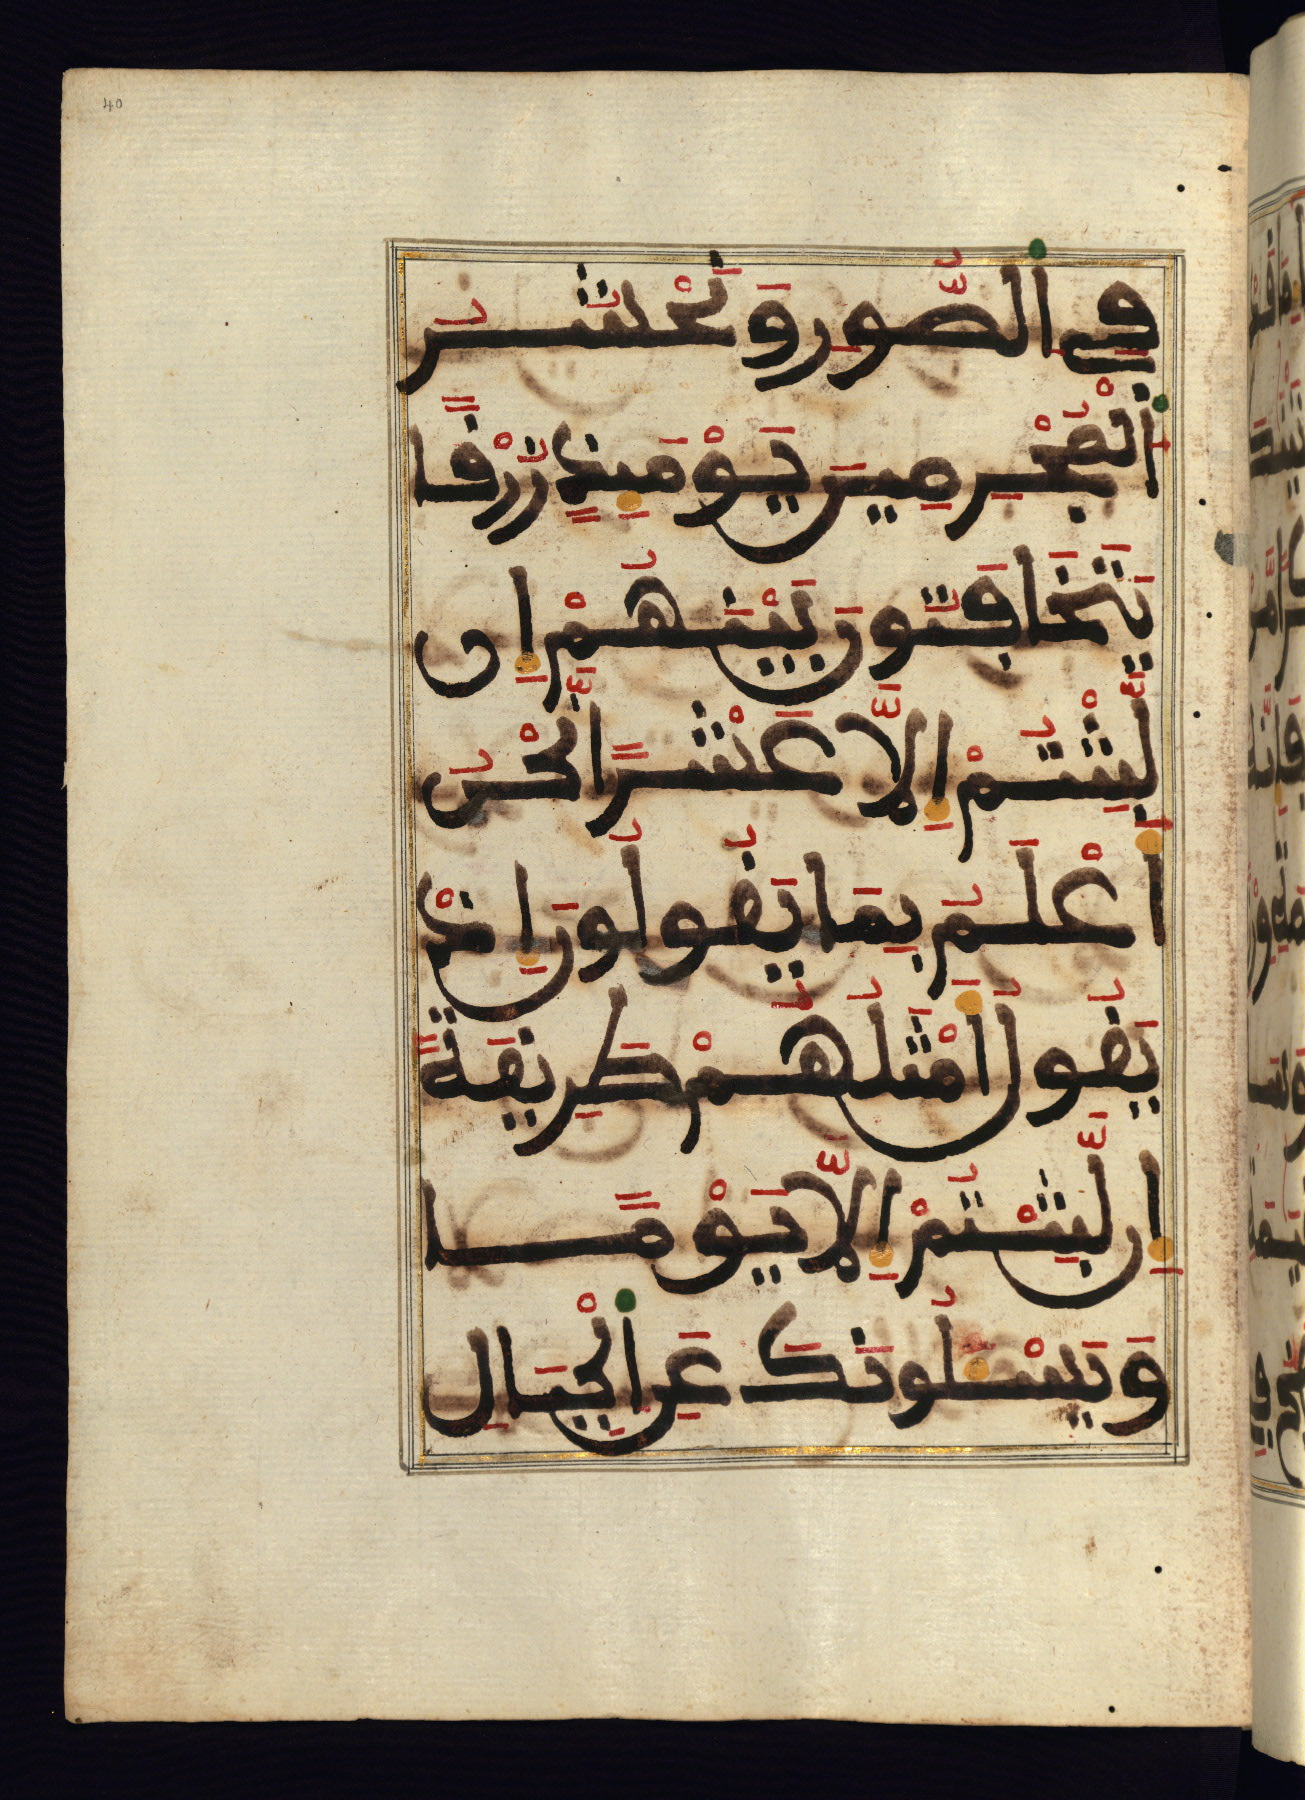 40
فِي اَ۬لصُّورِ وَنَحْشُرُ
اُ۬لْمُجْرِمِينَ يَوْمَئِذٍ زُرْقًا
يَتَخَافَتُونَ بَيْنَهُمْ إِن
لَّبِثْتُمْ إِلَّا عَشْرًا نَّحْنُ
أَعْلَمُ بِمَا يَقُولُونَ إِذْ
يَقُولُ أَمْثَلُهُمْ طَرِيقَةً
إِن لَّبِثْتُمْ إِلَّا يَوْمًا
وَيَسْـَٔلُونَكَ عَنِ اِ۬لْجِبَالِ